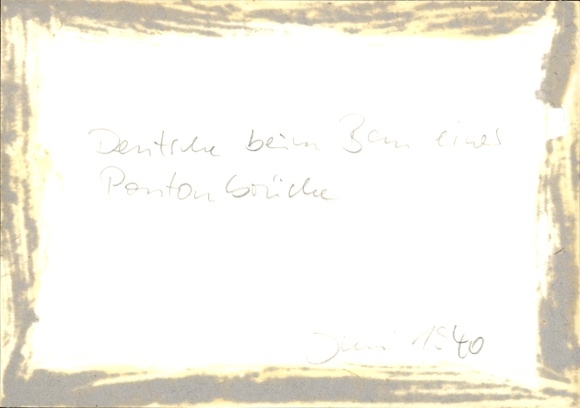 Deutsche beim Bau einer
Pontonbrücke
Juni 1940